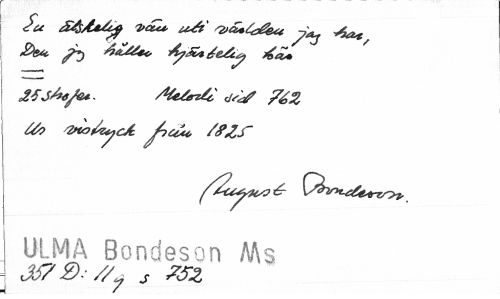 En älskelig vän uti världen jag har,
Den jg håller hjärtelig kär
25 strofer. Melodi sid 762
Ur vistryck från 1825
August Bondeson.
ULMA Bondeson Ms
351 D: 11 g s 752